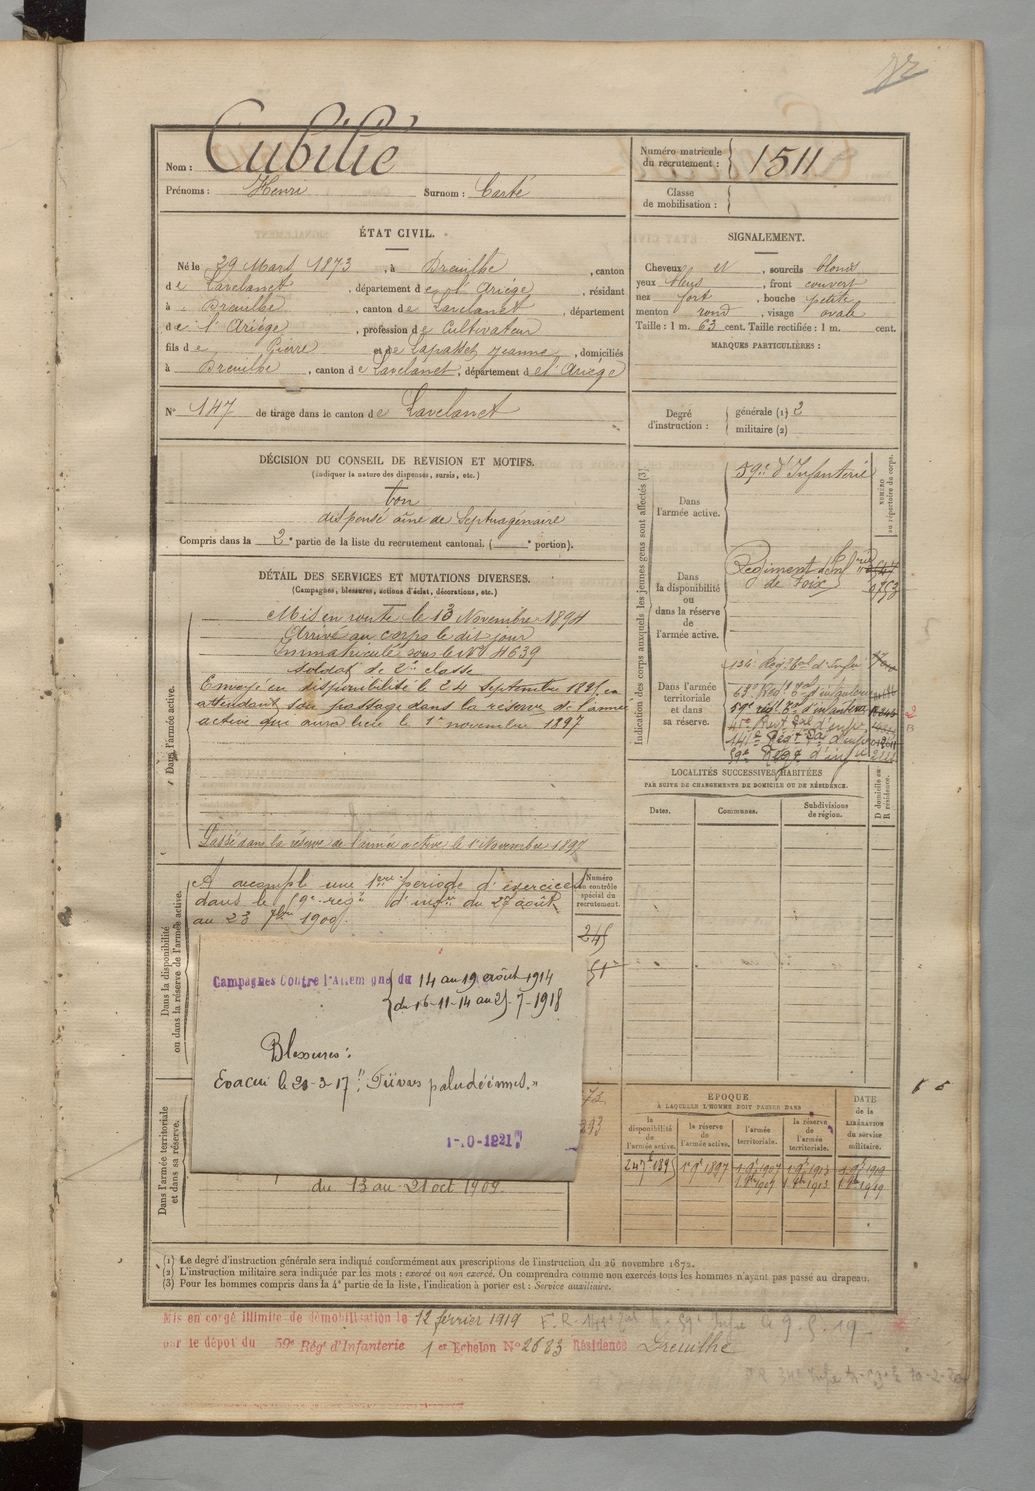 Nom : Cubilié
Prénoms : Henri Surnom : Carté
Numéro matricule du recrutement : 1511
Classe de mobilisation :
ÉTAT CIVIL.
Né le 29 Mars 1873, à Dreuilhe, canton
de Lavelanet, département de l'Ariège, résidant
à Dreuilhe, canton de Lavelanet, département
de l'Ariège, profession de Cultivateur
fils de Pierre et de Lapasset Jeanne, domiciliés
à Dreuilhe, canton de Lavelanet, département de l'Ariège
N° 147 de tirage dans le canton de Lavelanet
SIGNALEMENT.
Cheveux et, sourcils blonds
yeux bleus, front couvert
nez fort, bouche petite
menton rond, visage ovale
Taille : 1 m. 63 cent. Taille rectifiée : 1 m. cent.
MARQUES PARTICULIÈRES :
Degré d'instruction : générale (1) 2
militaire (2)
DÉCISION DU CONSEIL DE REVISION ET MOTIFS.
(Indiquer la nature des dispenses, sursis, etc.)
bon
dispensé aîné de Septuagénaire
Compris dans la 2e partie de la liste du recrutement cantonal. ( e portion).
DÉTAIL DES SERVICES ET MUTATIONS DIVERSES.
(Campagnes, blessures, actions d'éclat, décorations, etc.)
Dans l'armée active.
Mis en route le 13 Novembre 1894
Arrivé au corps le dit jour
Immatriculé sous le N° 4639
soldat de 2e classe
Envoyé en disponibilité le 24 Septembre 1895 en
attendant son passage dans la réserve de l'armée
active qui aura lieu le 1er novembre 1897
Passé dans la réserve de l'armée active le 1er Novembre 1897
Indication des corps auxquels les jeunes gens sont affectés (3).
NUMÉRO au répertoire du corps.
Dans l'armée active.
59e d'Infanterie
Dans la disponibilité ou dans la réserve de l'armée active.
Régiment d'Infrie
de Foix
Dans l'armée territoriale et dans sa réserve.
59e rég. d'infanterie
141e Régt d'infie
59e Régt d'infie
LOCALITÉS SUCCESSIVES HABITÉES
PAR SUITE DE CHANGEMENTS DE DOMICILE OU DE RÉSIDENCE.
Dates. Communes. Subdivisions de région. D domicile ou R résidence.
Dans la disponibilité ou dans la réserve de l'armée active.
A accompli une 1ère période d'exercices
dans le 59e régt d'infie du 27 août
au 23 7bre 1900
Numéro au contrôle spécial du recrutement.
245
Campagnes Contre l'Allemagne du 14 au 19 août 1914
du 16-11-14 au 25-7-1918
Blessures :
Evacué le 20-3-17 "Fièvres paludéennes."
Dans l'armée territoriale et dans sa réserve.
du 13 au 21 oct 1909
EPOQUE
À LAQUELLE L'HOMME DOIT PASSER DANS
la disponibilité de l'armée active. la réserve de l'armée active. l'armée territoriale. la réserve de l'armée territoriale. DATE de la LIBÉRATION du service militaire.
24 7bre 1895 1 9bre 1897 1 9bre 1907 1 9bre 1913 1 9bre 1919
1 9bre 1907 1 9bre 1913 1 9bre 1919
(1) Le degré d'instruction générale sera indiqué conformément aux prescriptions de l'instruction du 26 novembre 1872.
(2) L'instruction militaire sera indiquée par les mots : exercé ou non exercé. On comprendra comme non exercés tous les hommes n'ayant pas passé au drapeau.
(3) Pour les hommes compris dans la 4e partie de la liste, l'indication à porter est : Service auxiliaire.
Mis en congé illimité de démobilisation le 12 février 1919
par le dépôt du 59e Régt d'Infanterie 1er Echelon N° 2683 Résidence Dreuilhe